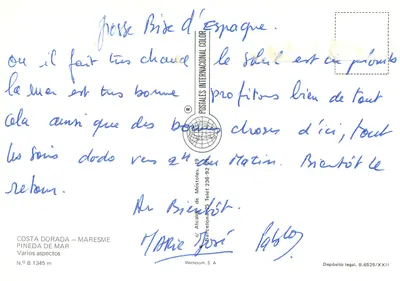 Grosse Bise d'Espagne.
ou il fait très chaud le soleil est au
la mer est très bonne profitons bien de tout
cela ainsi que des bonnes choses d'ici, tout
les soirs dodo vers 2h du Matin. Bientôt le
retour.
Au Bientôt.
MARIE José Pablo
POSTALES INTERNACIONAL COLOR
COSTA DORADA - MARESME
PINEDA DE MAR
Varios aspectos
N.º B 1345 m
Depósito legal, B. 6529/XXII